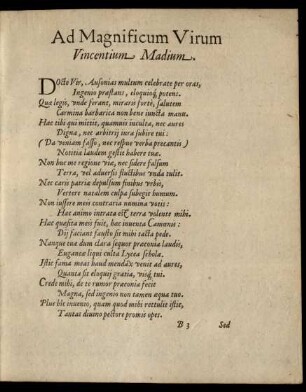 Ad Magnificum Virum
Vincentium Madium.
DOcto Vir, Ausonias multum celebrate per oras,
Ingenio præstans, eloquioq́; potens.
Quæ legis, unde ferant, miraris fortè, salutem
Carmina barbarica non bene iuncta manu.
Hæc tibi qui mittit, quamuis inculta, nec aures
Digna, nec arbitrij iura subire tui:
(Da veniam fasso, nec respue verba precantis)
Notitia laudem gestit habere tuæ.
Non huc me regione viæ, nec sidere falsum
Terra, vel aduersis fluctibus unda tulit.
Nec caris patriæ depulsum finibus urbis,
Vertere natalem culpa subegit humum.
Non iussere mei contraria numina votis:
Hæc animo intrata est terra volente mihi.
Hæc quæsita meis fuit, hæc inuenta Camœnis:
Dij faciant fausto sit mihi tacta pede.
Nanque tua dum clara sequor præconia laudis,
Euganeæ liqui culta Lycea scholæ.
Istic fama meas haud mendax venit ad aures,
Quanta sit eloquij gratia, visq́; tui.
Crede mihi, de te rumor præconia fecit
Magna, sed ingenio non tamen æqua tuo.
Plus hîc inuento, quam quod mihi rettulit istic,
Tantas diuino pectore promis opes.
B 3 Sed